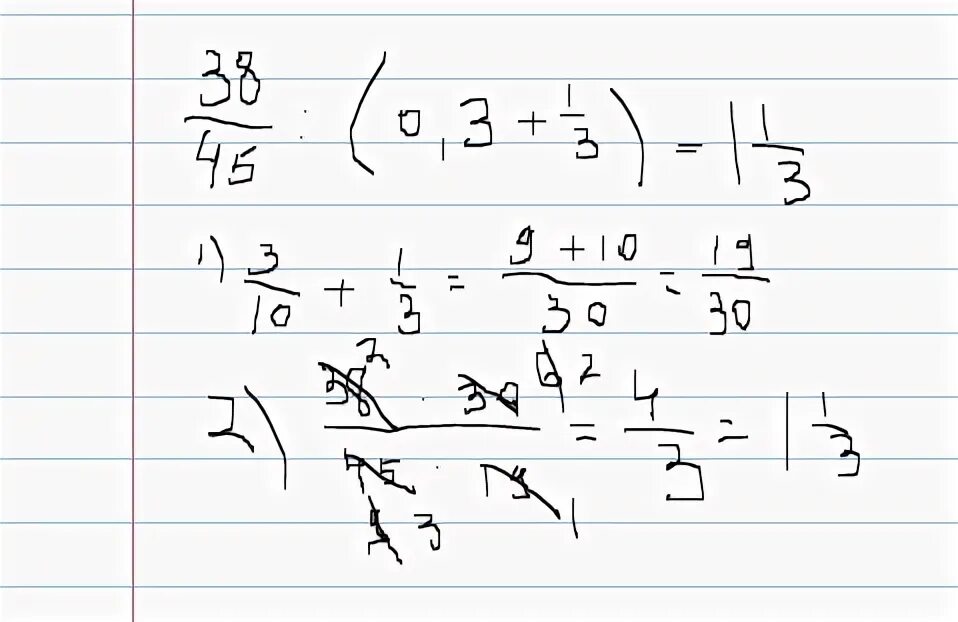 38/45 : (0,3 + 1/3) = 1 1/3
1) 3/10 + 1/3 = (9 + 10)/30 = 19/30
2) (38 2 · 30 6 2)/(45 9 3 · 19 1) = 4/3 = 1 1/3